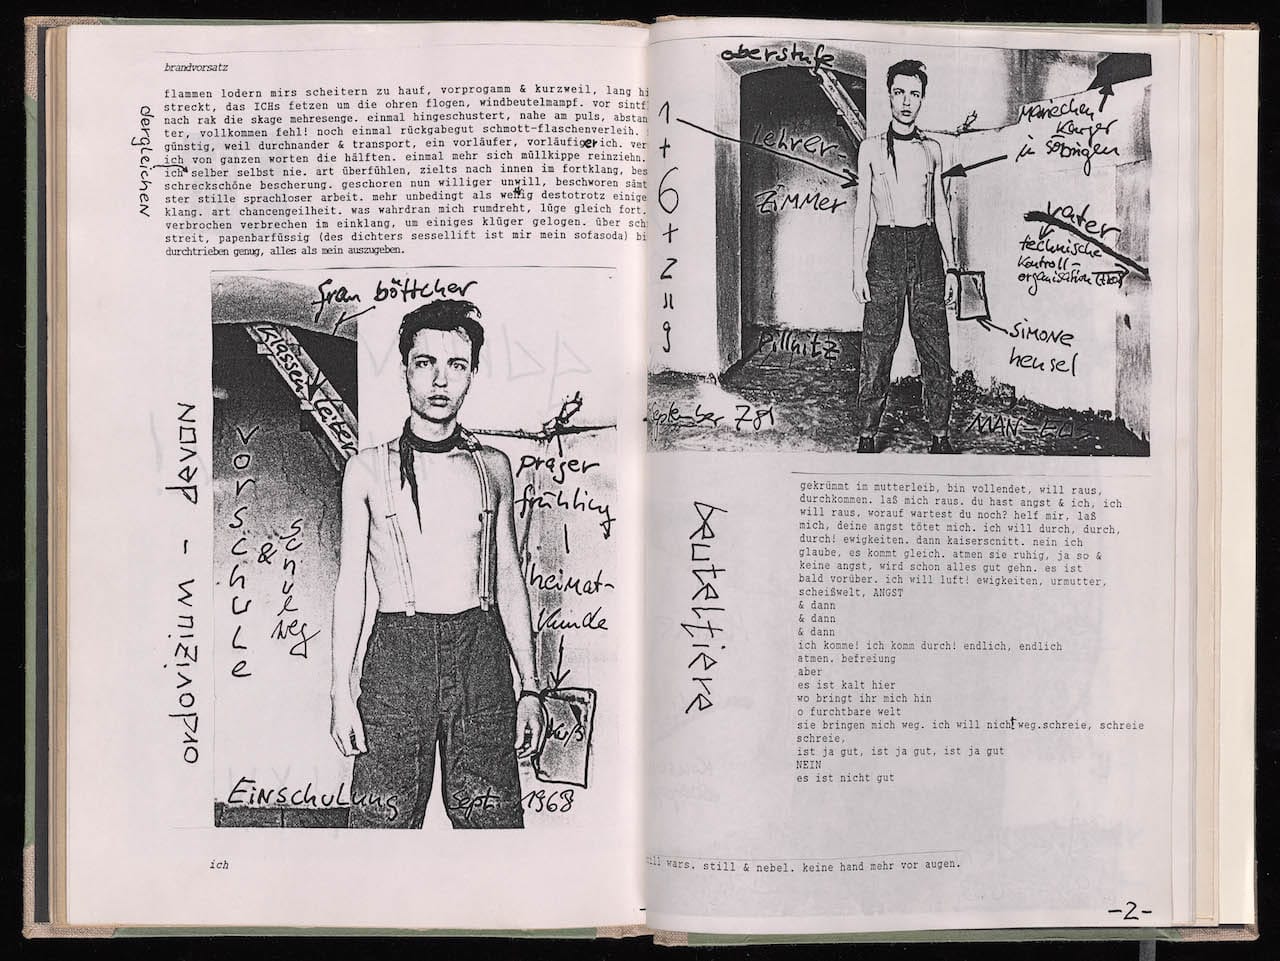 brandvorsatz
flammen lodern mirs scheitern zu hauf, vorprogamm & kurzweil, lang hi
streckt, das ICHs fetzen um die ohren flogen, windbeutelmampf. vor sintf
nach rak die skage mehresenge. einmal hingeschustert, nahe am puls, abstan
ter, vollkommen fehl! noch einmal rückgabegut schmott-flaschenverleih.
günstig, weil durchnander & transport, ein vorläufer, vorläufigerich. ver
ich von ganzen worten die hälften. einmal mehr sich müllkippe reinziehn.
ich selber selbst nie. art überfühlen, zielts nach innen im fortklang, bes
schreckschöne bescherung. geschoren nun williger unwill, beschworen sämt
ster stille sprachloser arbeit. mehr unbedingt als wenig destotrotz einige
klang. art chancengeilheit. was wahrdran mich rumdreht, lüge gleich fort.
verbrochen verbrechen im einklang, um einiges klüger gelogen. über sch
streit, papenbarfüssig (des dichters sessellift ist mir mein sofasoda) bi
durchtrieben genug, alles als mein auszugeben.
dergleichen
frau böttcher
Klassenleiter
vorschule
&
schulweg
prager
frühling
|
heimat-
kunde
Ku/3
Einschulung Sept. 1968
ordovizium - devon
ich
oberstufe
1
+
6
+
2
=
9
Lehrer-
Zimmer
Pillnitz
september 78
Mariechen
Karger
in Söbrigen
vater
technische
Kontroll-
organisation (TKO)
Simone
hensel
beuteltiere
gekrümmt im mutterleib, bin vollendet, will raus,
durchkommen. laß mich raus. du hast angst & ich, ich
will raus, worauf wartest du noch? helf mir, laß
mich, deine angst tötet mich. ich will durch, durch,
durch! ewigkeiten. dann kaiserscnitt. nein ich
glaube, es kommt gleich. atmen sie ruhig, ja so &
keine angst, wird schon alles gut gehn. es ist
bald vorüber. ich will luft! ewigkeiten, urmutter,
scheißwelt, ANGST
& dann
& dann
& dann
ich komme! ich komm durch! endlich, endlich
atmen. befreiung
aber
es ist kalt hier
wo bringt ihr mich hin
o furchtbare welt
sie bringen mich weg. ich will nicht weg.schreie, schreie
schreie,
ist ja gut, ist ja gut, ist ja gut
NEIN
es ist nicht gut
wars. still & nebel. keine hand mehr vor augen.
-2-